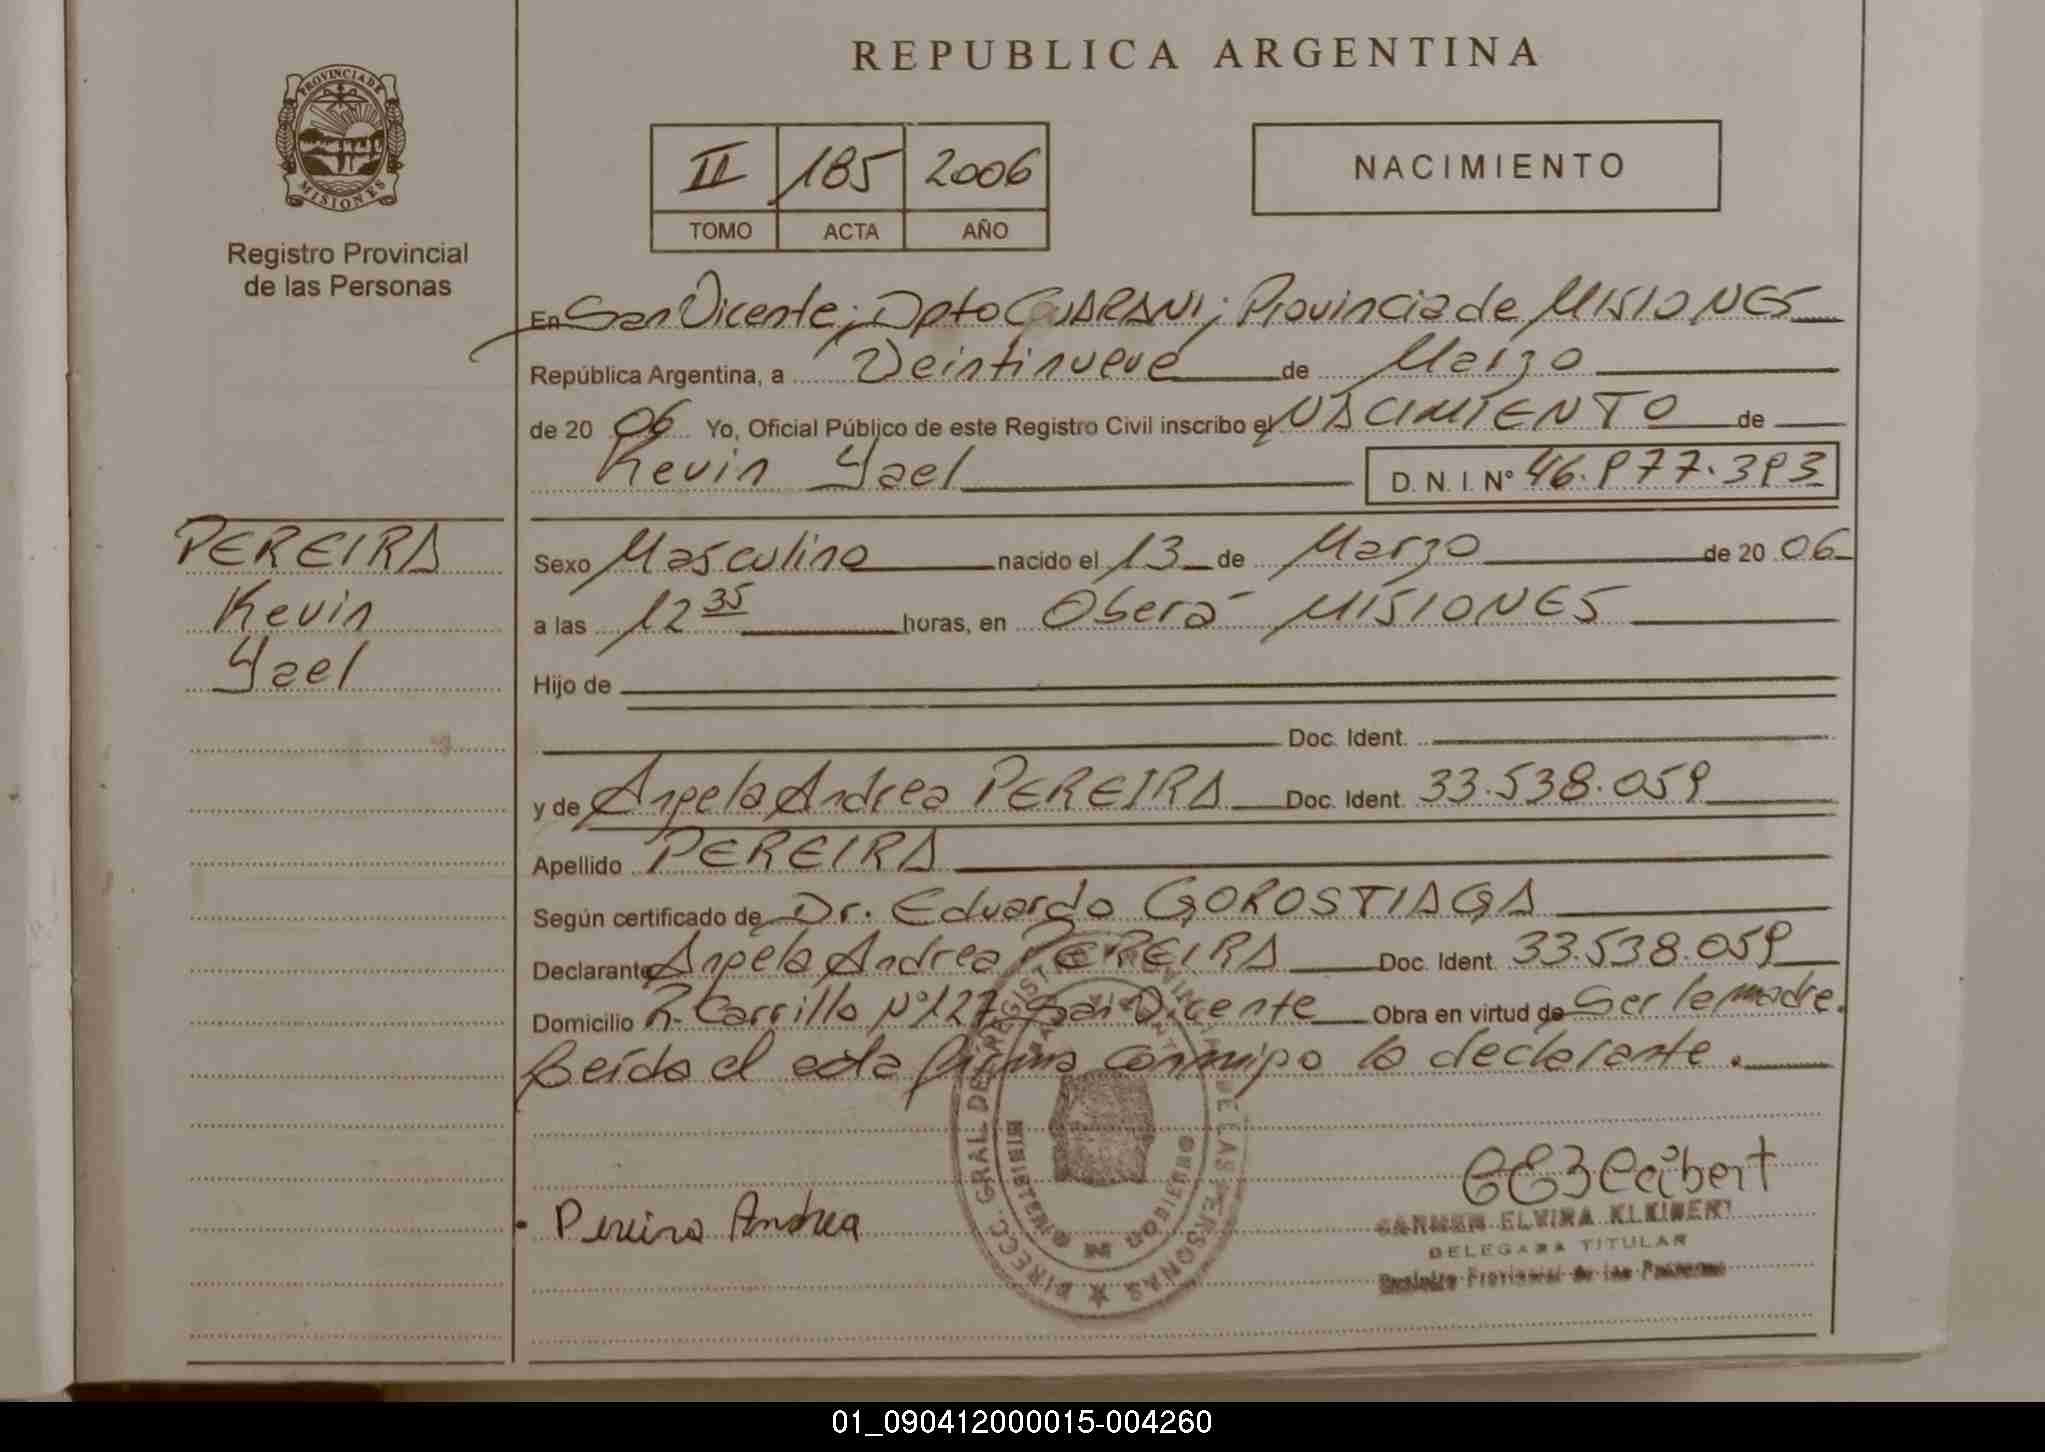 REPUBLICA ARGENTINA
PROVINCIA DE MISIONES
Registro Provincial
de las Personas
II 185 2006
TOMO ACTA AÑO
NACIMIENTO
En San Vicente; Dpto GUARANI; Provincia de MISIONES
República Argentina, a Veintinueve de Marzo
de 20 06 Yo, Oficial Público de este Registro Civil inscribo el NACIMIENTO de
Kevin Yael D. N. I. Nº 46.977.393
PEREIRA
Kevin
Yael
Sexo Masculino nacido el 13 de Marzo de 20 06
a las 12 35 horas, en Oberá MISIONES
Hijo de
Doc. Ident.
y de Angela Andrea PEREIRA Doc. Ident. 33.538.059
Apellido PEREIRA
Según certificado de Dr. Eduardo GOROSTIAGA
Declarante Angela Andrea PEREIRA Doc. Ident. 33.538.059
Domicilio R. Carrillo Nº 127 San Vicente Obra en virtud de Ser la madre.
Leída el acta firma conmigo la declarante.
DIRECC. GRAL. DE REGISTRO PROVINCIAL DE LAS PERSONAS
SAN VICENTE
MINISTERIO DE GOBIERNO
Pereira Andrea
CARMEN ELVIRA KLEIBERT
DELEGADA TITULAR
Registro Provincial de las Personas
01_090412000015-004260